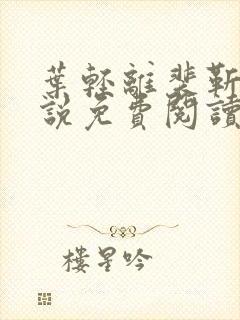 葉輕離裴靳
說免費閱讀
樓星吟